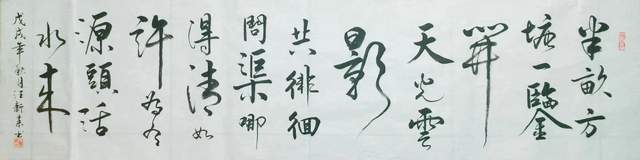 半畝方
塘一鑒
開
天光雲
影
共徘徊
問渠哪
得清如
許為有
源頭活
水来
戊戌年秋月汪新来書